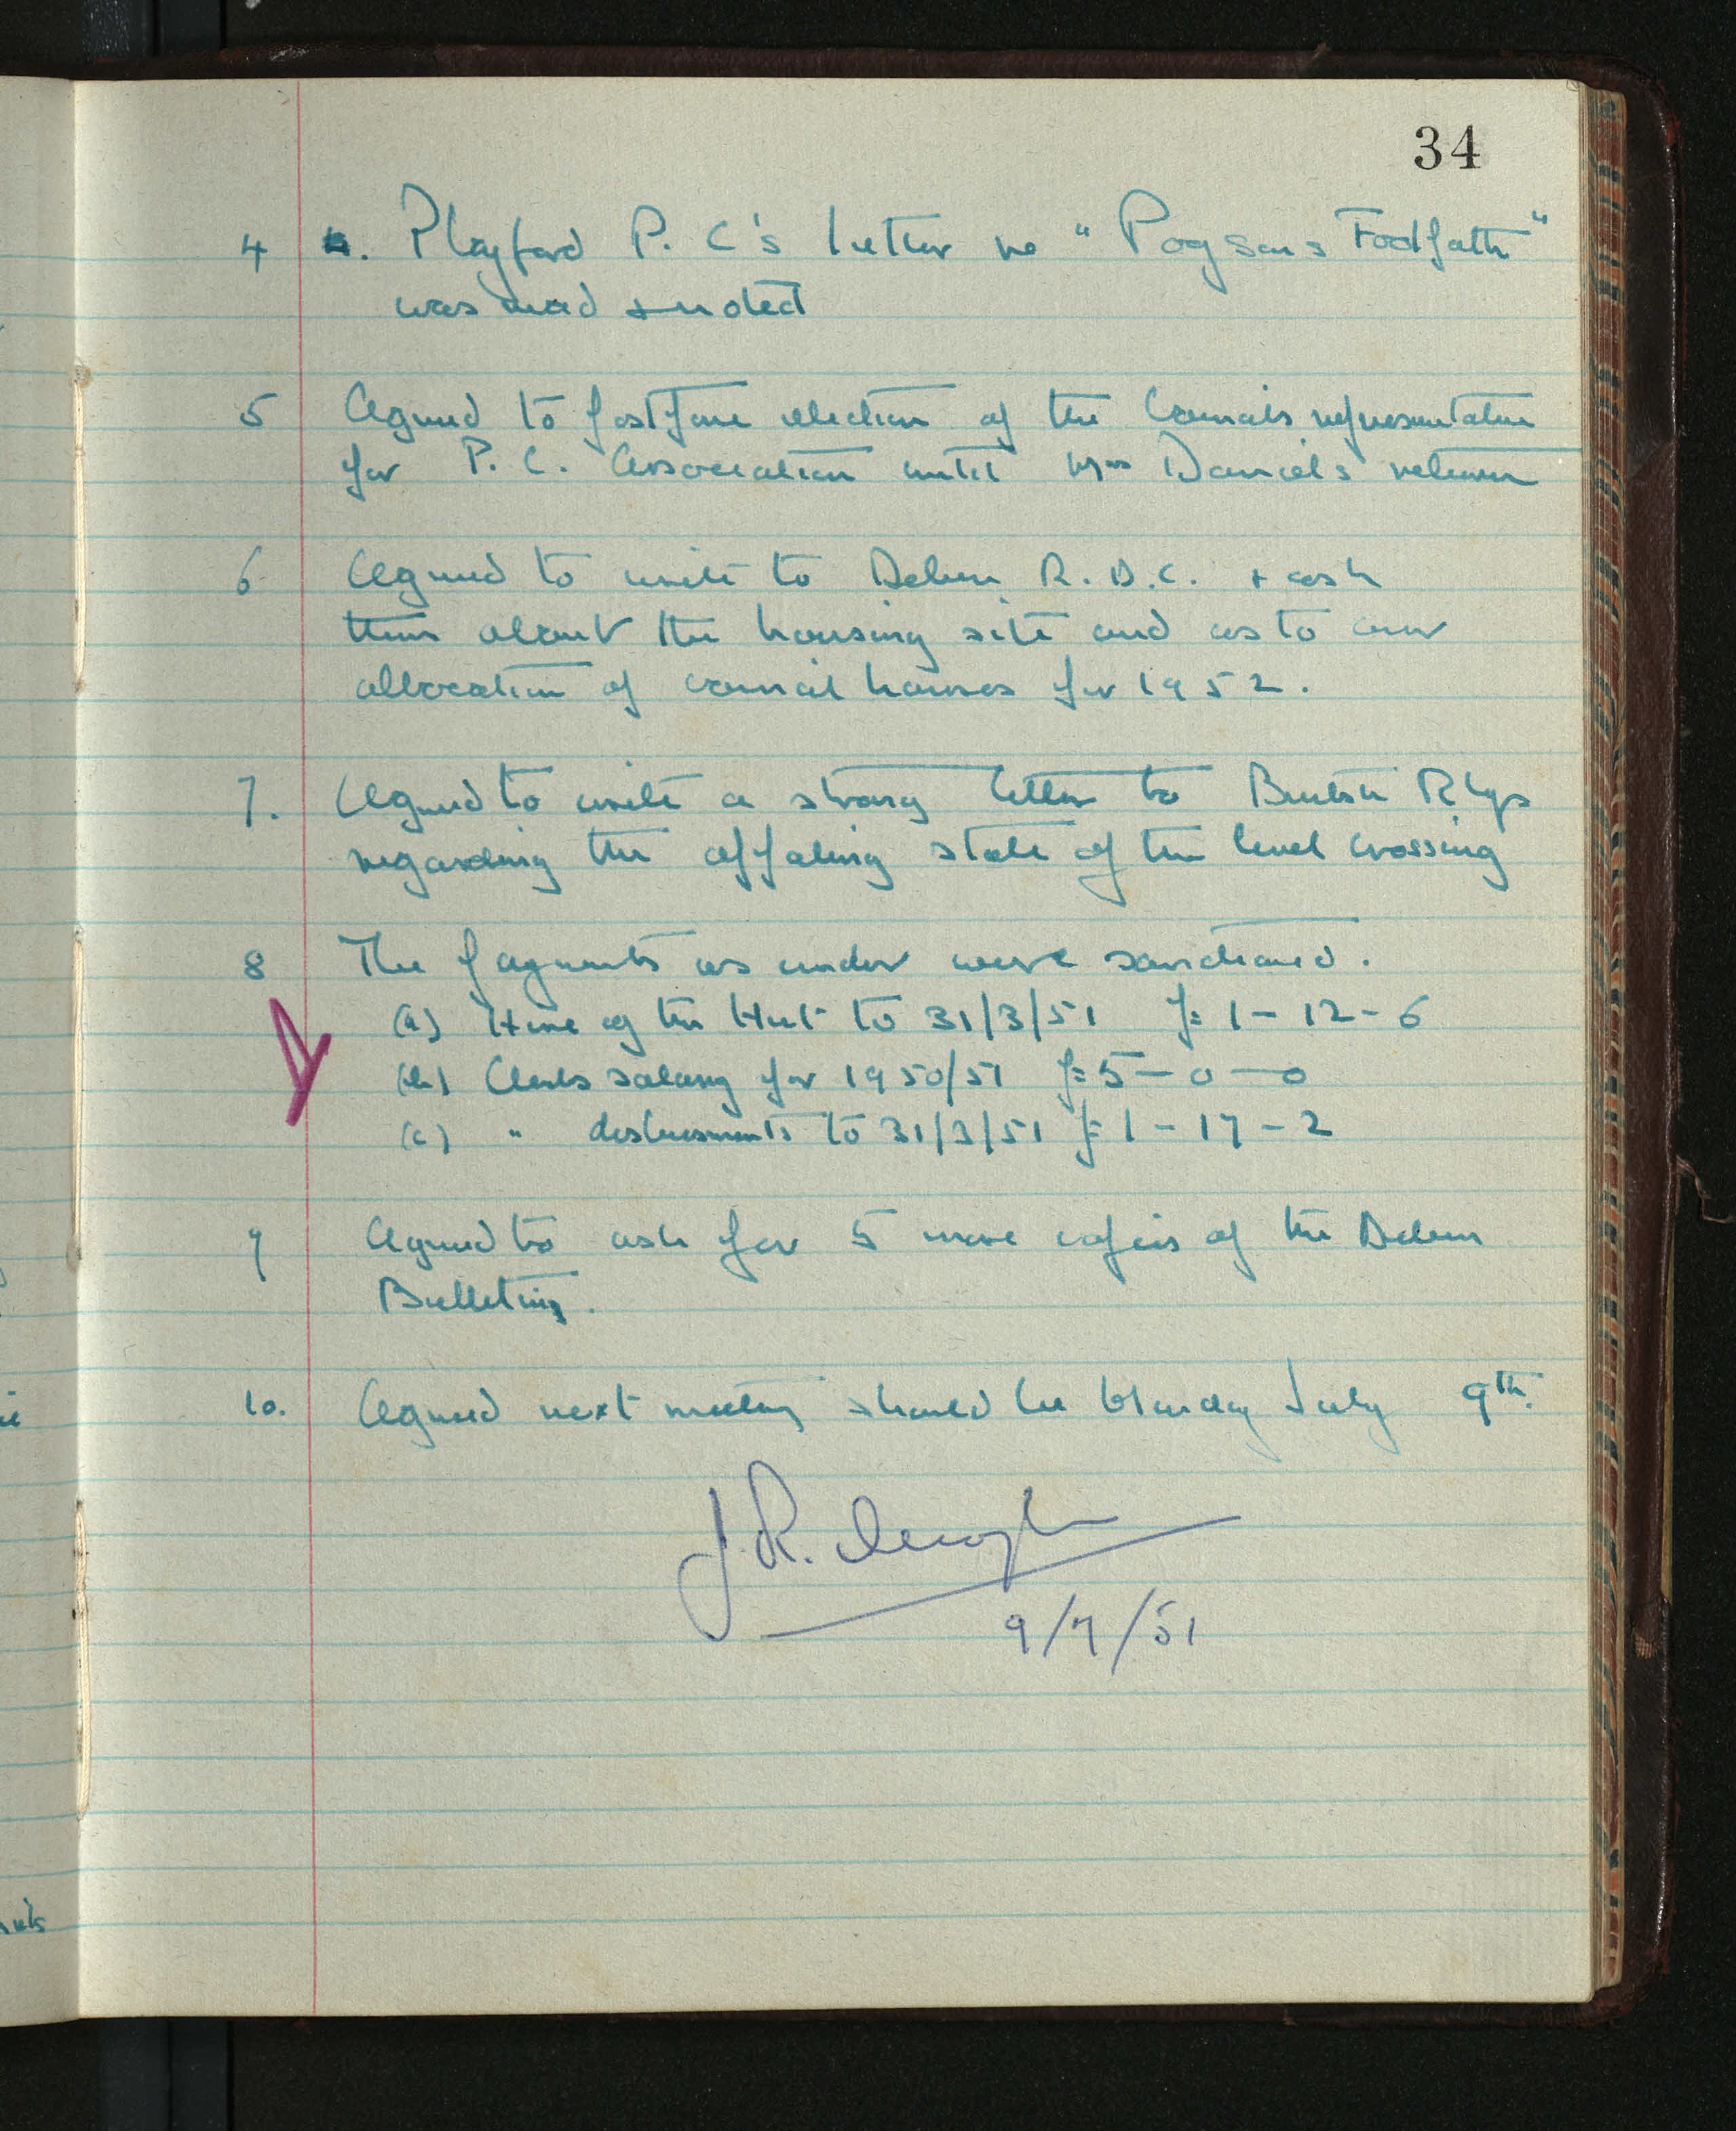 34
4 . Playford P. C's letter re "Pogsons Footpath"
was read + noted
5 Agreed to postpone election of the Councils representative
for P. C. Association until Mrs Daniels return
6 Agreed to write to Deben R.D.C. + ask
them about the housing site and as to our
allocation of council houses for 1952.
7. Agreed to write a strong letter to British Rlys
regarding the appaling state of the level crossing
8 The payments as under were sanctioned.
(a) Hire of the Hut to 31/3/51 £1-12-6
(b) Clerks salary for 1950/51 £5-0-0
(c) " disbursments to 31/3/51 £1-17-2
9 Agreed to ask for 5 more copies of the Deben
Bulleting.
10. Agreed next meeting should be Monday July 9th.
J.R.
9/7/51